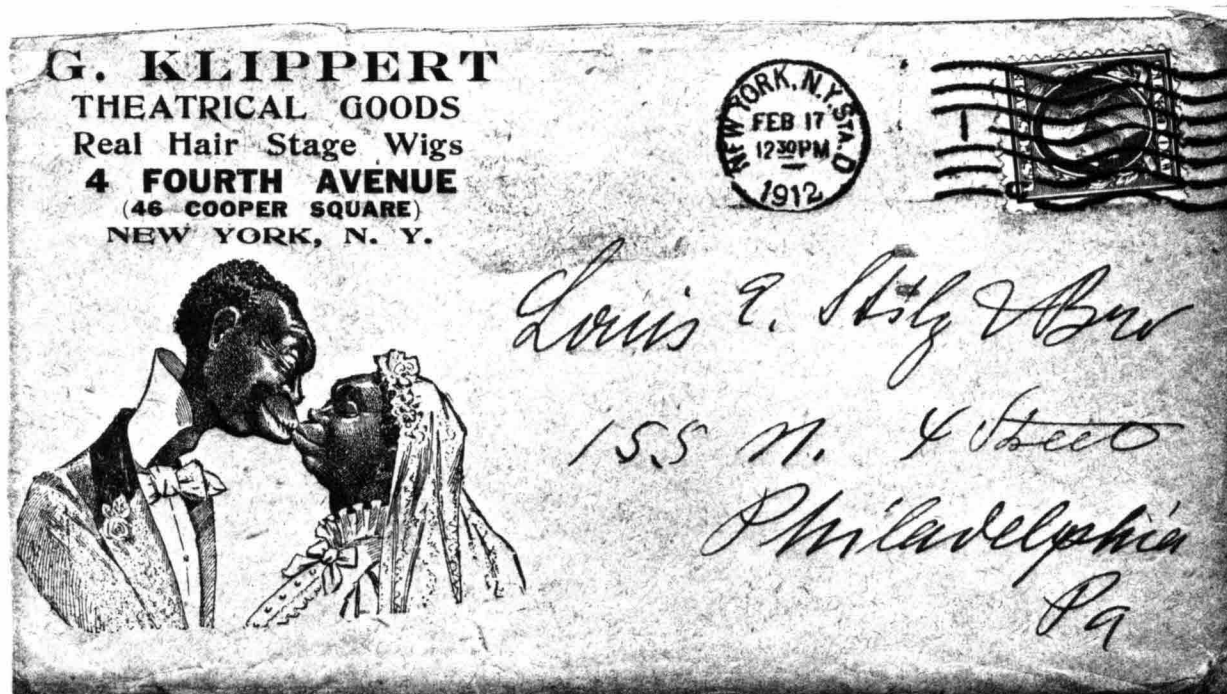 G. KLIPPERT
THEATRICAL GOODS
Real Hair Stage Wigs
4 FOURTH AVENUE
(46 COOPER SQUARE)
NEW YORK, N. Y.
NEW YORK, N.Y. STA. D
FEB 17
12 30 PM
1912
1
Louis E. Stilz & Bro
155 N. 4 Street
Philadelphia
Pa